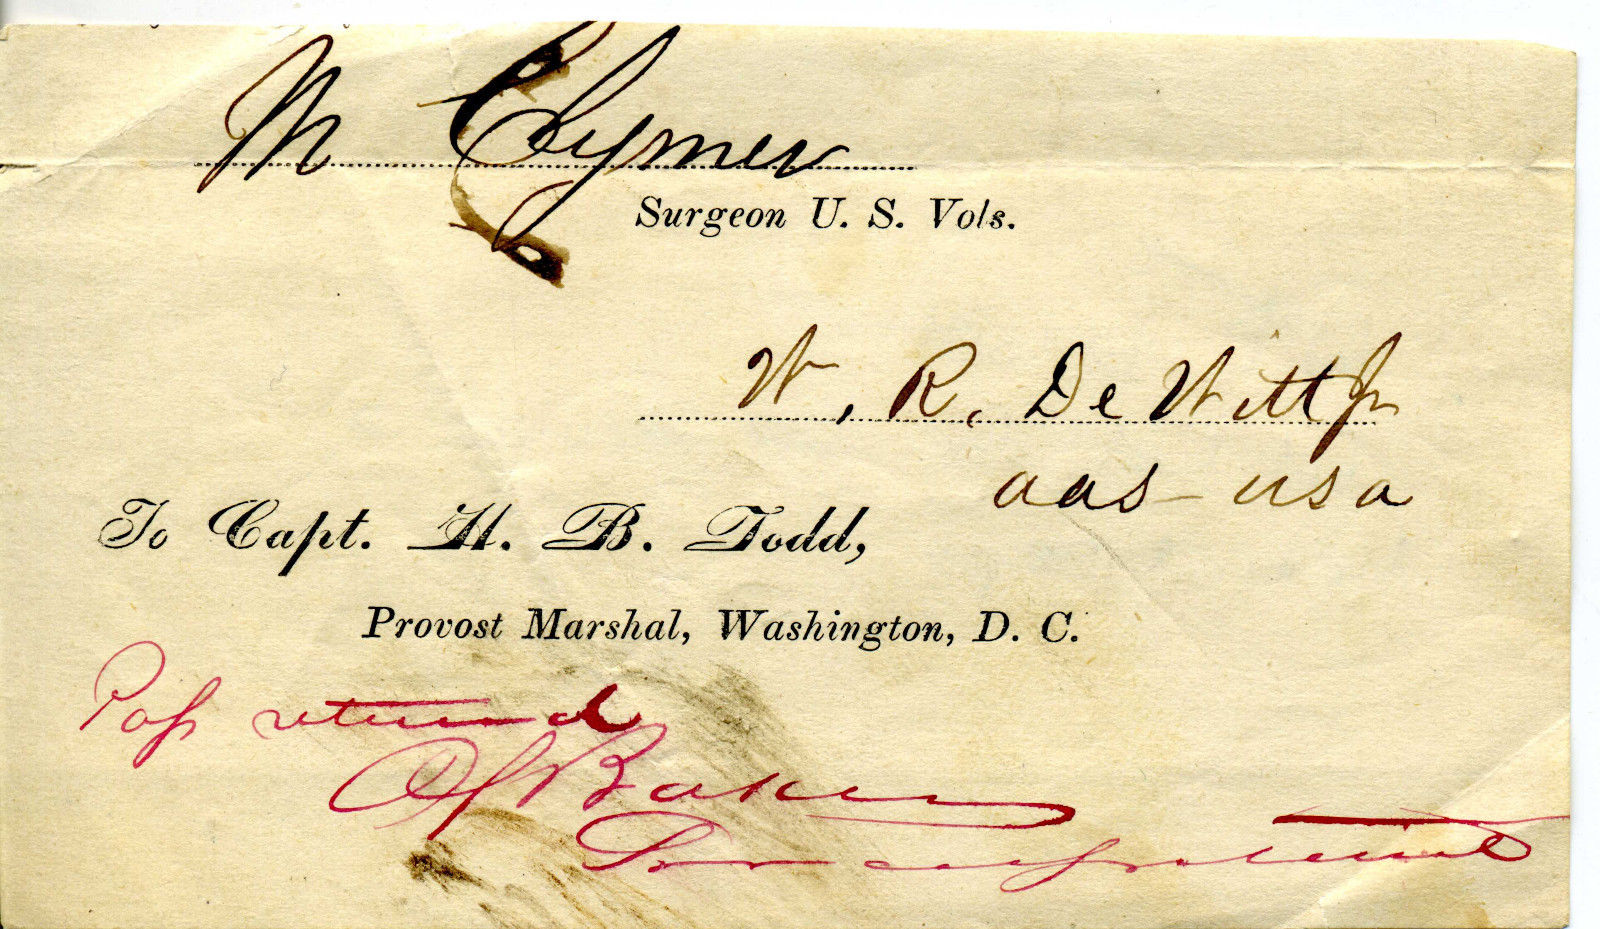 M Clymer
Surgeon U. S. Vols.
W. R. DeWitt Jr
aas - usa
To Capt. H. B. Todd,
Provost Marshal, Washington, D. C.
Pass returned
Baker